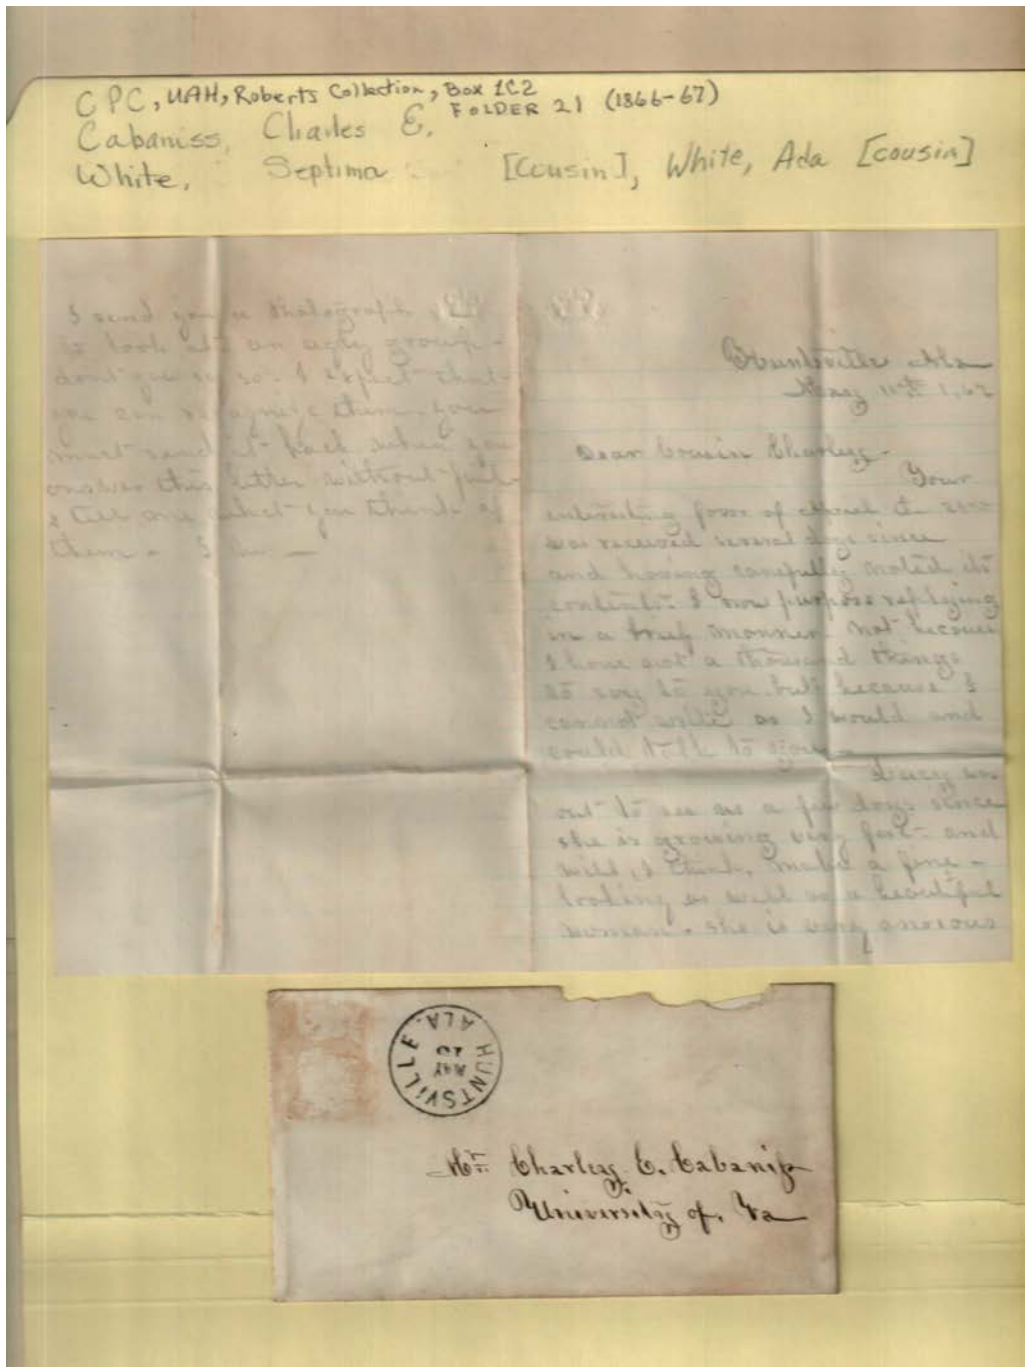 CPC, UAH, Roberts Collection, Box 1C2
FOLDER 21 (1866-67)
Cabaniss, Charles E.
White, Septima [Cousin], White, Ada [cousin]
I send you a Photograph
to look at an ugly group-
dont you say so. I expect that
you can recognize them. you
must send it back when you
answer this letter without fail-
& tell me what you think of
them -
Huntsville Ala
May 10th
Dear Cousin Charley-
Your
interesting favor of
was received several days since
and having carefully noted its
contents I now purpose replying
in a brief manner not because
I have not a thousand things
to say to you but because I
cannot write as I would and
could talk to you-
Lucy was
out to see us a few days since
she is growing very fast- and
will, I think, make a fine-
looking as well as a beautiful
woman. she is very anxious
HUNTSVILLE. ALA.
MAY
10
Mr. Charley E. Cabaniss
University of. Va